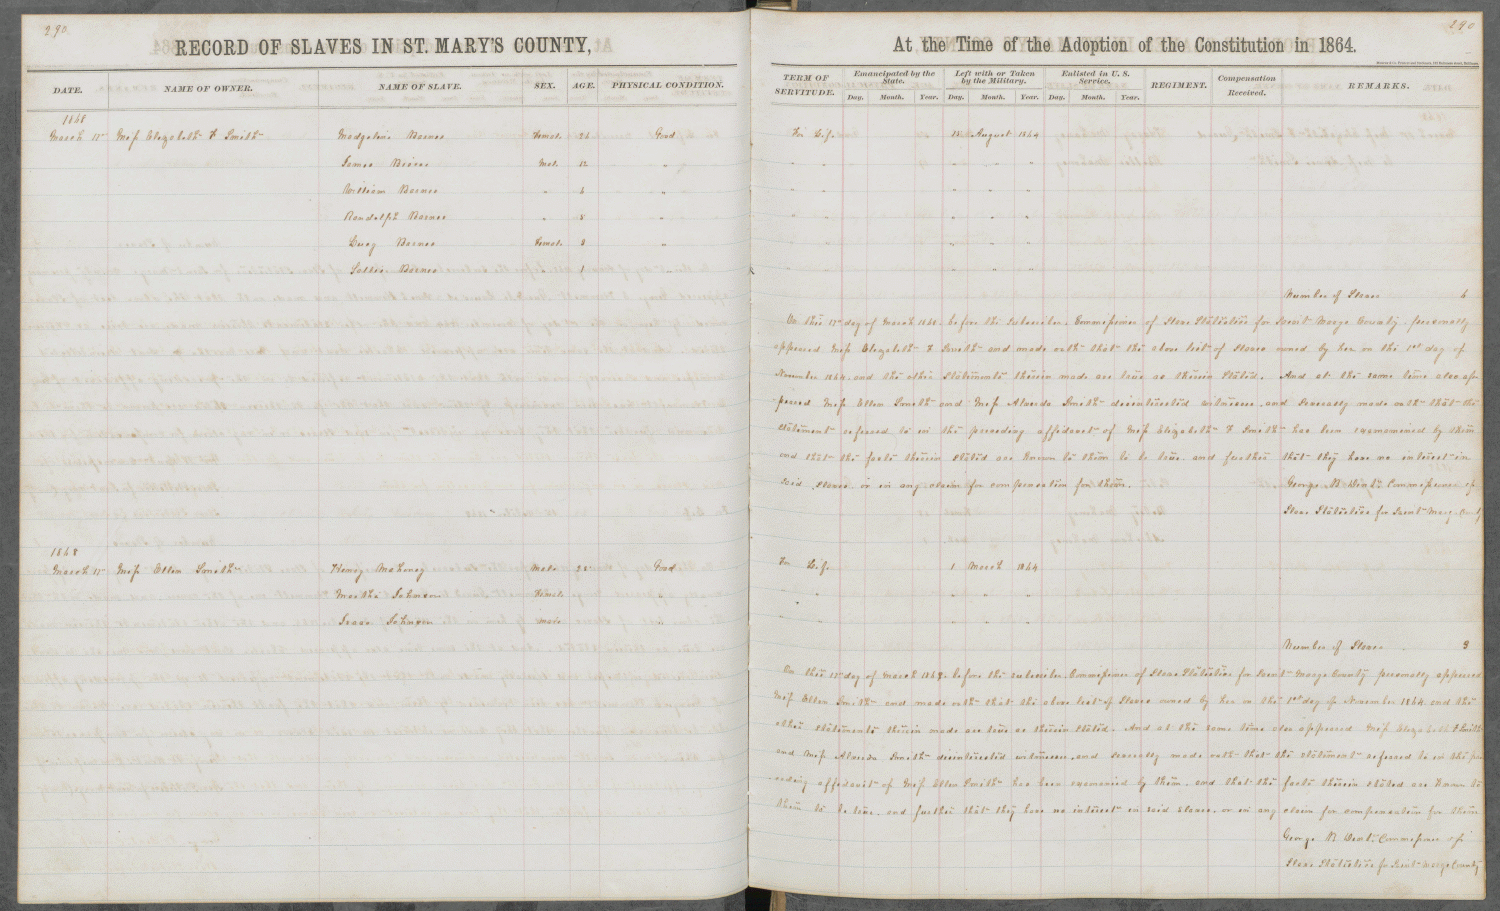 290
RECORD OF SLAVES IN ST. MARY'S COUNTY,
DATE. NAME OF OWNER. NAME OF SLAVE. SEX. AGE. PHYSICAL CONDITION.
1868
March 17 Miss Elizabeth F Smith Barnes Female Good
James Barnes Male 12 "
William Barnes " 6 "
Randolph Barnes " "
Lucy Barnes Female 3 "
Barnes " 1 "
1868
March 17 Miss Ellen Smith Henry Mahoney Male Good
Martha Johnson Female "
Isaac Johnson male "
290
At the Time of the Adoption of the Constitution in 1864.
TERM OF SERVITUDE. Emancipated by the State. Left with or Taken by the Military. Enlisted in U. S. Service. REGIMENT. Compensation Received. REMARKS.
Day. Month. Year. Day. Month. Year. Day. Month. Year.
For Life August 1864
Number of Slaves 6
On this 17 day of March 1868 before the subscriber Commissioner of Slave Statistics for Saint Marys County, personally
appeared Miss Elizabeth F Smith and made oath that the above list of Slaves owned by her on the 1st day of
November 1864, and the other Statements therein made are true as therein Stated. And at the same time also ap
peared Miss Ellen Smith and Miss Alverda Smith disinterested witnesses, and severally made oath that the
statement referred to in the preceding affidavit of Miss Elizabeth F Smith has been examined by them
and that the facts therein stated are known to them to be true, and further that they have no interest in
said slaves, or in any claim for compensation for them. George B Dent Commissioner of
Slave Statistics for Saint Marys County
For Life 1 March 1864
Number of Slaves 3
On this 17 day of March 1868 before the subscriber Commissioner of Slave Statistics for Saint Marys County personally appeared
Miss Ellen Smith and made oath that the above list of Slaves owned by her on the 1st day of November 1864, and the
other statements therein made are true as therein stated. And at the same time also appeared Miss Elizabeth F Smith
and Miss Alverda Smith disinterested witnesses, and severally made oath that the statement referred to in the pre
ceding affidavit of Miss Ellen Smith has been examined by them, and that the facts therein stated are known to
them to be true, and further that they have no interest in said slaves, or in any claim for compensation for them
George B Dent Commissioner of
Slave Statistics for Saint Marys County